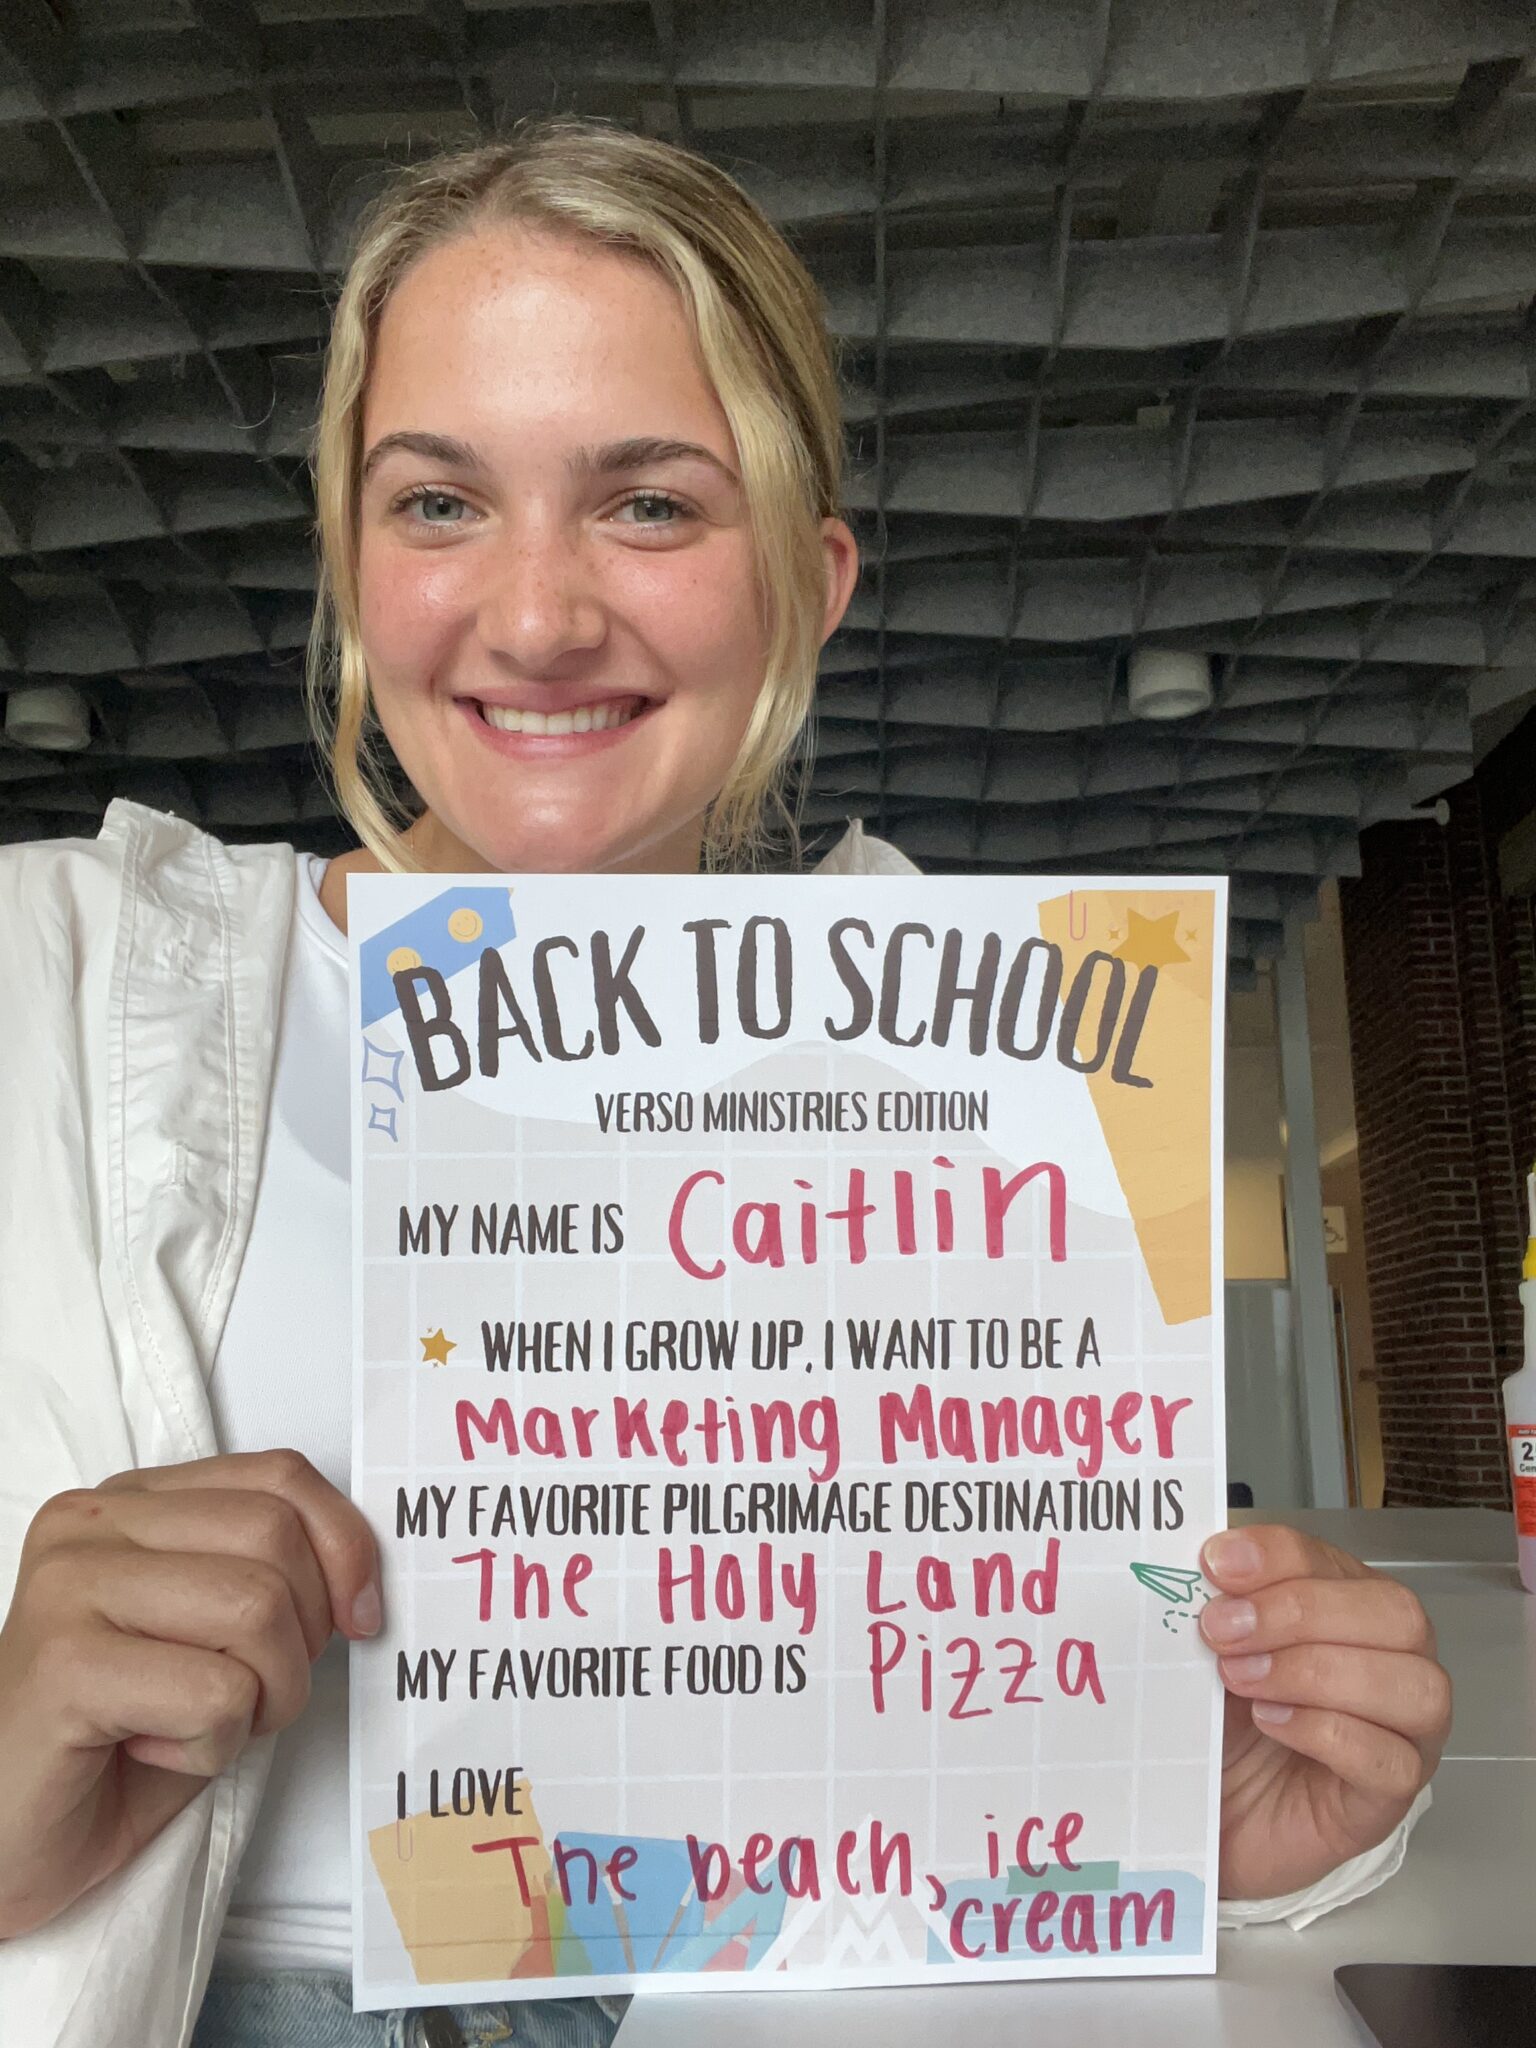 BACK TO SCHOOL
VERSO MINISTRIES EDITION
MY NAME IS Caitlin
WHEN I GROW UP, I WANT TO BE A
Marketing Manager
MY FAVORITE PILGRIMAGE DESTINATION IS
The Holy Land
MY FAVORITE FOOD IS Pizza
I LOVE
The beach, ice
cream